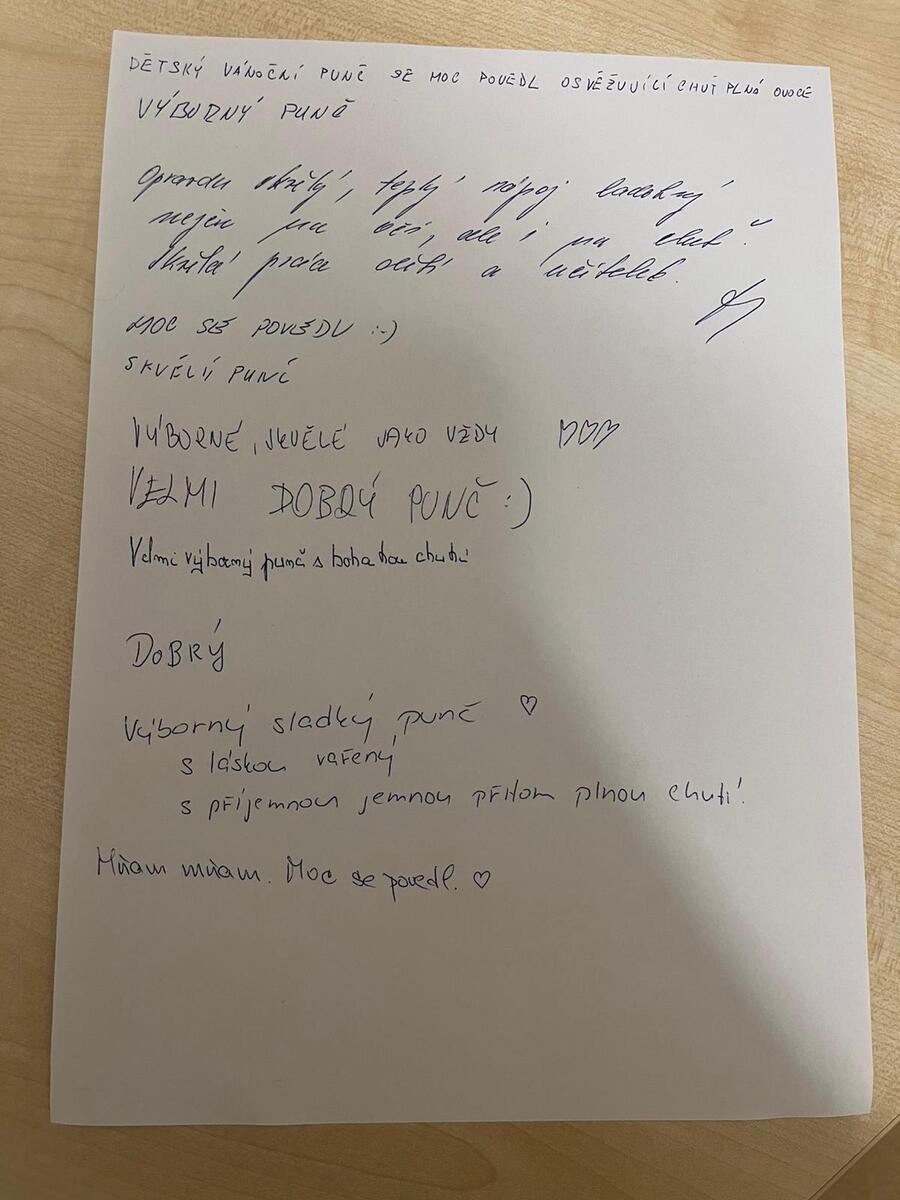 DĚTSKÝ VÁNOČNÍ PUNČ SE MOC POVEDL OSVĚŽUJÍCÍ CHUŤ PLNÁ OVOCE
VÝBORNÝ PUNČ
Opravdu skvělý, teplý nápoj lahodný
nejen na oči, ale i na chuť.
Skvělá práce dětí a učitelek.
MOC SE POVEDLO :-)
SKVĚLÝ PUNČ
VÝBORNÉ, SKVĚLÉ JAKO VŽDY ♡♡♡
VELMI DOBRÝ PUNČ :)
Velmi výborný punč s bohatou chutí
DOBRÝ
Výborný sladký punč ♡
s láskou vařený
s příjemnou jemnou přitom plnou chutí!
Mňam mňam. Moc se povedl. ♡